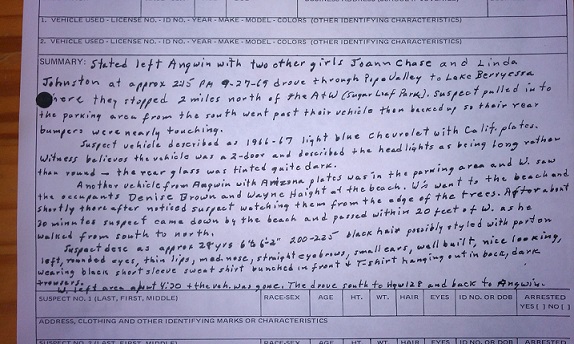 1. VEHICLE USED - LICENSE NO. - ID NO. - YEAR - MAKE - MODEL - COLORS (OTHER IDENTIFYING CHARACTERISTICS)
2. VEHICLE USED - LICENSE NO. - ID NO. - YEAR - MAKE - MODEL - COLORS (OTHER IDENTIFYING CHARACTERISTICS)
SUMMARY: Stated left Angwin with two other girls Joann Chase and Linda
Johnston at approx 245 PM 9-27-69 drove through Pope Valley to Lake Berryessa
here they stopped 2 miles north of the A+W (Sugar Loaf Park). Suspect pulled in to
the parking area from the south went past their vehicle then backed up so their rear
bumpers were nearly touching.
Suspect vehicle described as 1966-67 light blue Chevrolet with Calif. plates.
Witness believes the vehicle was a 2-door and described the headlights as being long rather
than round - the rear glass was tinted quite dark.
Another vehicle from Angwin with Arizona plates was in the parking area and W. saw
the occupants Denise Brown and Wayne Haight at the beach. W's went to the beach and
shortly there after noticed suspect watching them from the edge of the trees. After about
30 minutes suspect came down by the beach and passed within 20 feet of W. as he
walked from south to north.
Suspect desc as approx 28 yrs 6'0 6'2" 200-225 black hair possibly styled with part on
left, rounded eyes, thin lips, med nose, straight eyebrows, small ears, well built, nice looking,
wearing black short sleeve sweat shirt bunched in front & T-shirt hanging out in back, dark
trousers.
W. left area about 4:30 + the veh. was gone. The drove south to Hgw 128 and back to Angwin.
SUSPECT NO. 1 (LAST, FIRST, MIDDLE) RACE-SEX AGE HT. WT. HAIR EYES ID NO. OR DOB ARRESTED
YES ( ) NO ( )
ADDRESS, CLOTHING AND OTHER IDENTIFYING MARKS OR CHARACTERISTICS
SUSPECT NO. 2 (LAST, FIRST, MIDDLE) RACE-SEX AGE HT. WT. HAIR EYES ID NO. OR DOB ARRESTED